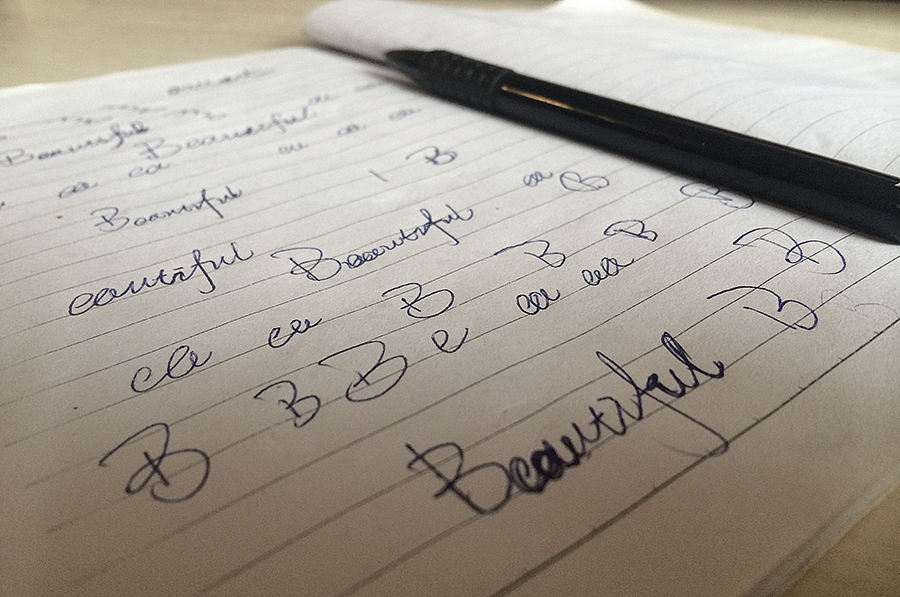 Beautiful Beautiful
ea ea ea ea ea
Beautiful B
eautiful Beautiful ea B
ea ea B B B B
B B B e ea ea B
B Beautiful B